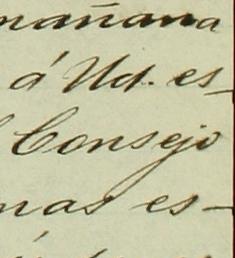 mañana
á Ud. es-
Consejo
mas es-